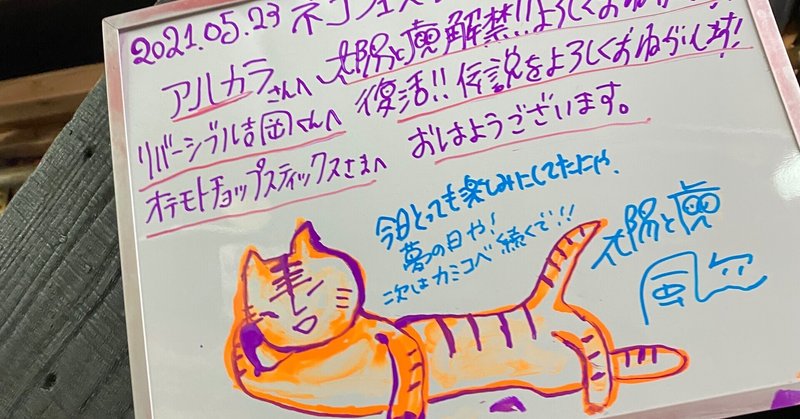 2021.05.23 ネコフェス
アルカラさんへ 太陽と虎解禁!!よろしくおねがい
リバーシブル吉岡くんへ 復活!!伝説をよろしくおねがいします!
オテモトチョップスティックスさまへ おはようございます。
今日とっても楽しみにしてたにゃ、
夢の日や!
次はカミコベ続くで!!
太陽と虎
風次